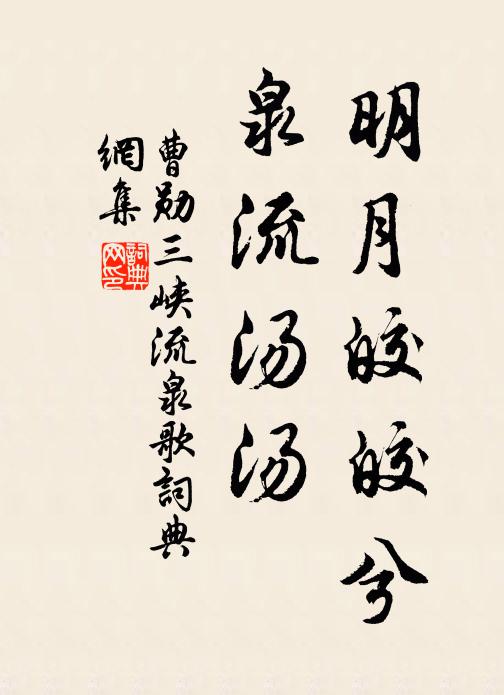 明月皎皎兮
泉流汤汤
曹勋三峡流泉歌詞典
網集
詞典网印